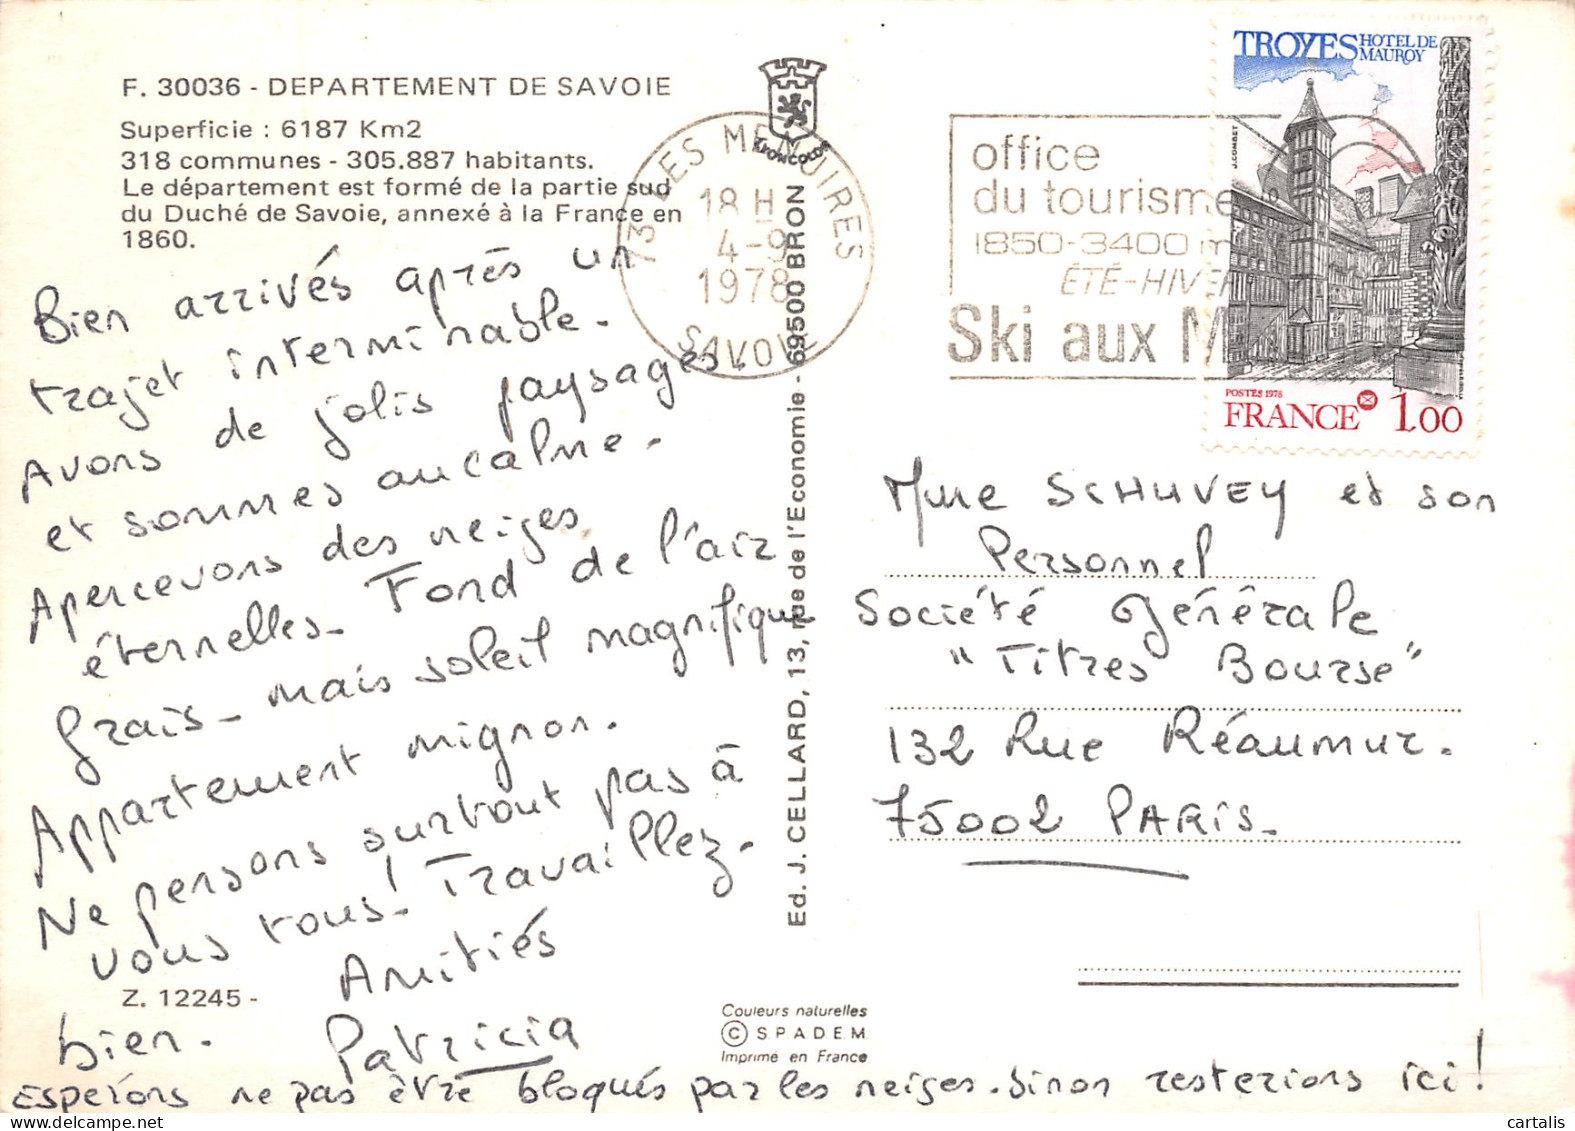 F. 30036 - DEPARTEMENT DE SAVOIE
Superficie : 6187 Km2
318 communes - 305.887 habitants.
Le département est formé de la partie sud
du Duché de Savoie, annexé à la France en
1860.
Bien arrivés après un
trajet interminable.
Avons de jolis paysages
et sommes au calme.
Apercevons des neiges
éternelles. Fond de l'air
frais - mais soleil magnifique
Appartement mignon.
Ne pensons surtout pas à
vous tous! Travaillez
bien.
Amitiés
Patricia
Espérons ne pas être bloqués par les neiges. Sinon resterions ici!
Z. 12245 -
73 LES MENUIRES
18 H
4-9
1978
SAVOIE
KROMCOLOR
Ed. J. CELLARD, 13, rue de l'Economie - 69500 BRON
Couleurs naturelles
© SPADEM
Imprimé en France
office
du tourisme
1850-3400 m
ÉTÉ-HIVER
Ski aux M
TROYES HOTEL DE
MAUROY
J.COMBET
POSTES 1978
FRANCE 1.00
Mme SCHUVEY et son
Personnel
Société Générale
"Titres Bourse"
132 Rue Réaumur.
75002 PARIS.
cartalis